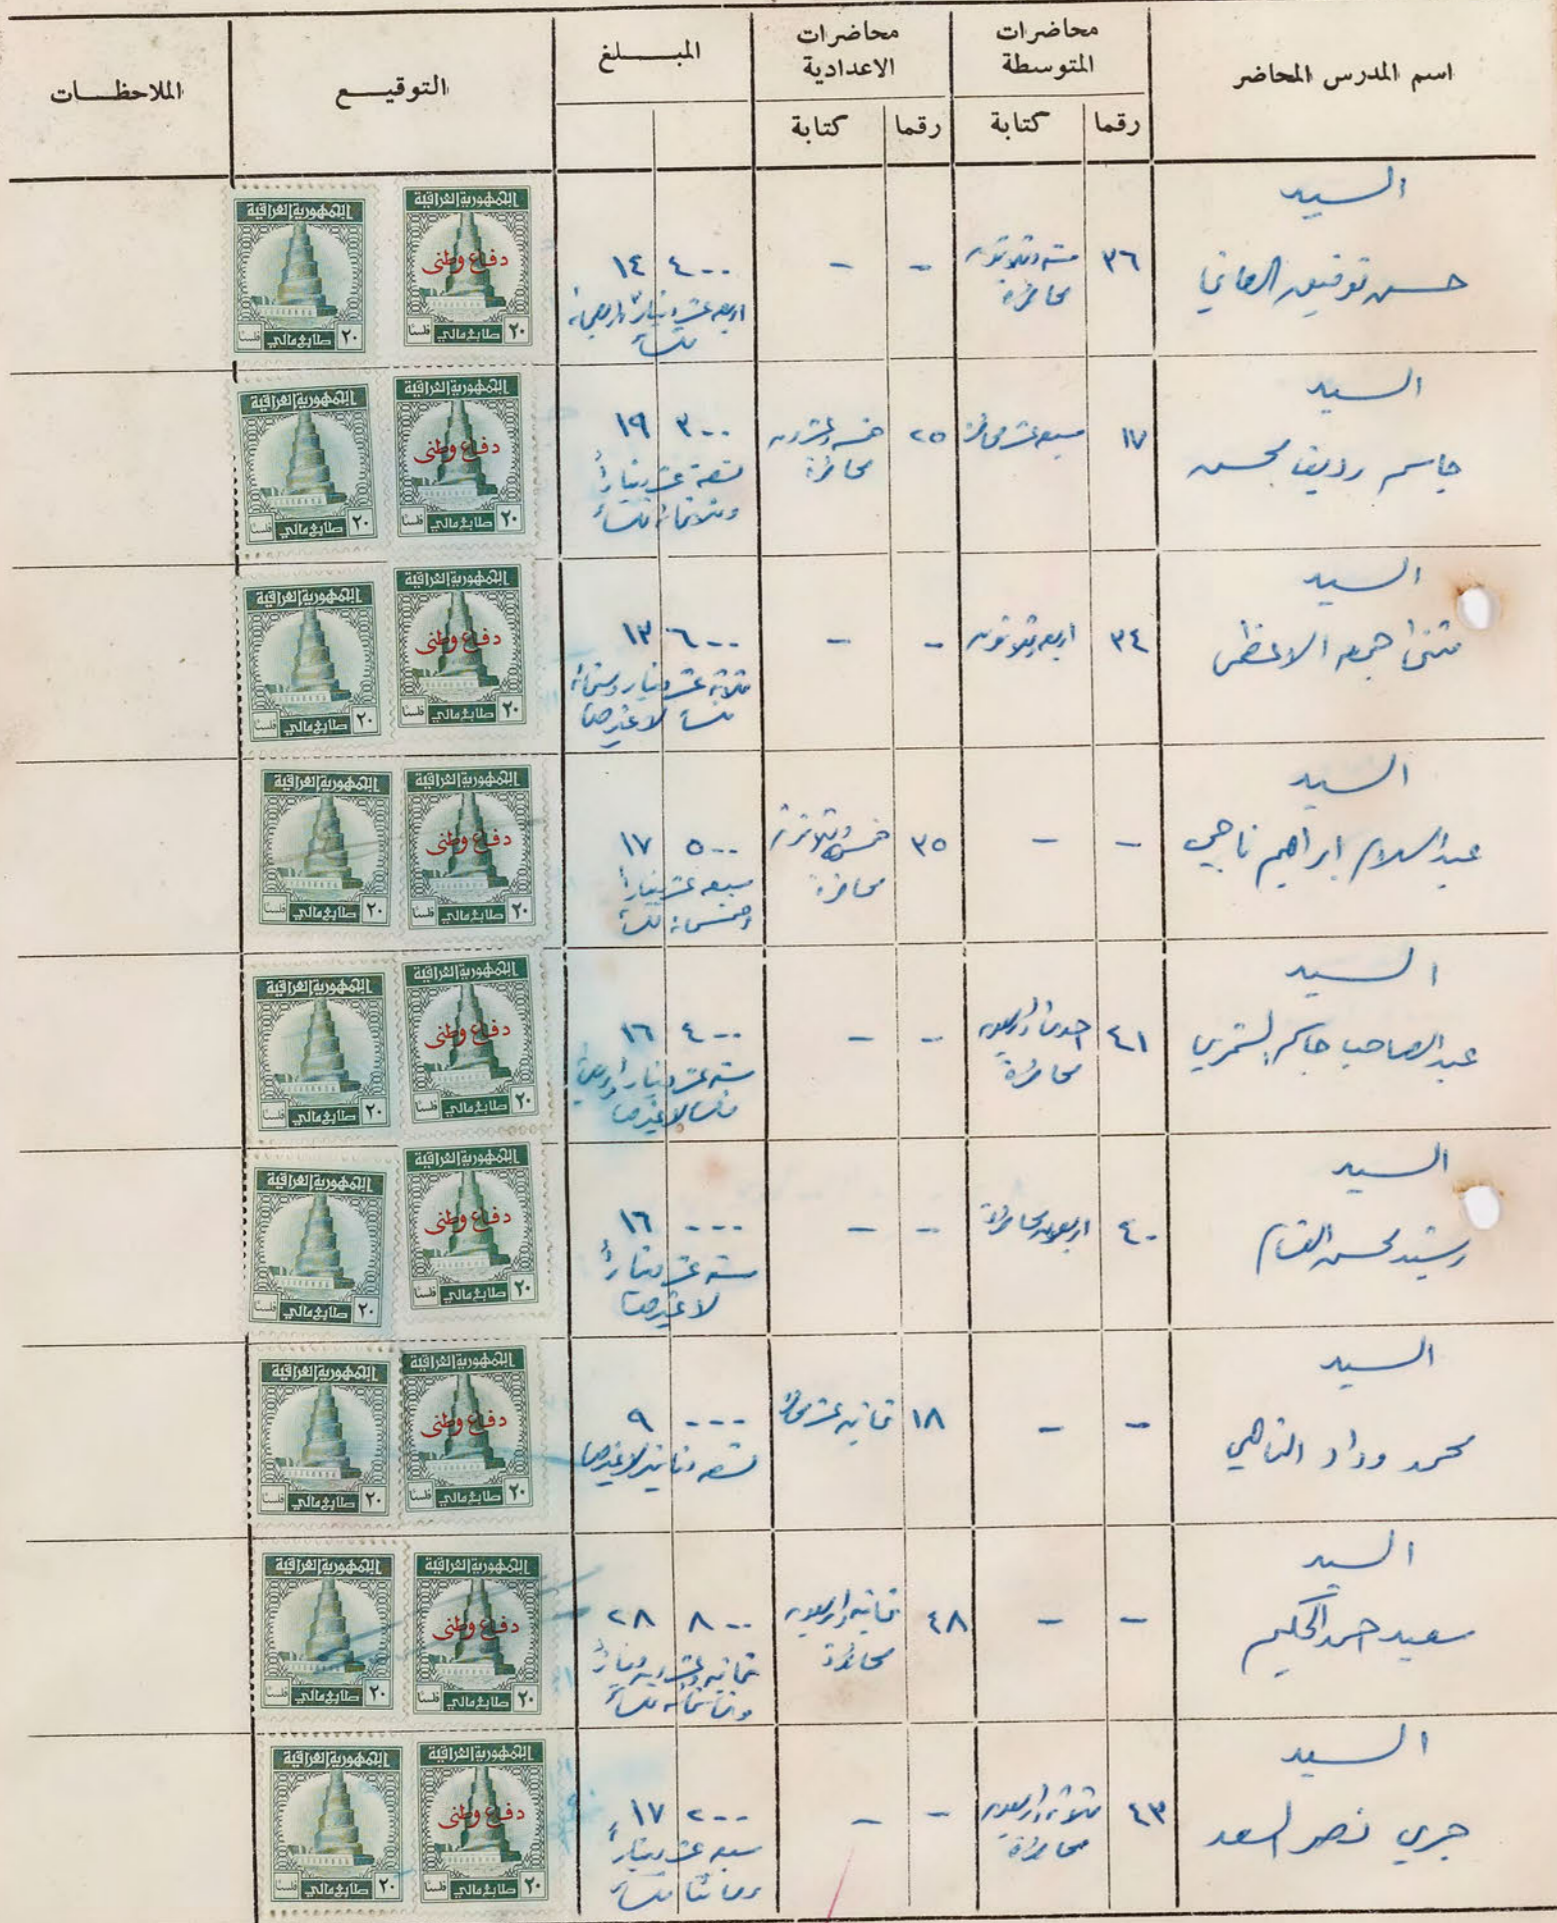 اسم المدرس المحاضر
محاضرات المتوسطة
محاضرات الاعدادية
المبـــلغ
التوقيـــع
الملاحظـــات
رقما كتابة رقما كتابة
السيد
حسن توفيق العاني
٣٦ ستة وثلاثون محاضرة - - ١٤ ٤٠٠
اربعة عشر دينارًا واربعمائة فلسًا
الجمهورية العراقية دفاع وطني ٢٠ طابع مالي فلسًا
الجمهورية العراقية ٢٠ طابع مالي فلسًا
السيد
جاسم رديف محسن
١٧ سبعة عشر محاضرة ٢٥ خمسة وعشرون محاضرة ١٩ ٣٠٠
تسعة عشر دينارًا
وثلاثمائة فلسًا
الجمهورية العراقية دفاع وطني ٢٠ طابع مالي فلسًا
الجمهورية العراقية ٢٠ طابع مالي فلسًا
السيد
مثنى جمعه الاعظمي
٣٤ اربعة وثلاثون - - ١٣ ٦٠٠
ثلاثة عشر دينار وستمائة
فلسًا لا غيرها
الجمهورية العراقية دفاع وطني ٢٠ طابع مالي فلسًا
الجمهورية العراقية ٢٠ طابع مالي فلسًا
السيد
عبدالسلام ابراهيم ناجي
- - ٣٥ خمسة وثلاثون محاضرة ١٧ ٥٠٠
سبعة عشر دينارًا
وخمسمائة فلسًا
الجمهورية العراقية دفاع وطني ٢٠ طابع مالي فلسًا
الجمهورية العراقية ٢٠ طابع مالي فلسًا
السيد
عبدالصاحب جاسم الشمري
٤١ احدى واربعون محاضرة - - ١٦ ٤٠٠
ستة عشر دينارًا واربعمائة
فلسًا لا غيرها
الجمهورية العراقية دفاع وطني ٢٠ طابع مالي فلسًا
الجمهورية العراقية ٢٠ طابع مالي فلسًا
السيد
رشيد محسن القسام
٤٠ اربعون محاضرة - - ١٦ ٠٠٠
ستة عشر دينارًا
لا غيرها
الجمهورية العراقية دفاع وطني ٢٠ طابع مالي فلسًا
الجمهورية العراقية ٢٠ طابع مالي فلسًا
السيد
محمد وداد
- - ١٨ ثمانية عشر محاضرة ٩ ٠٠٠
تسعة دنانير لا غيرها
الجمهورية العراقية دفاع وطني ٢٠ طابع مالي فلسًا
الجمهورية العراقية ٢٠ طابع مالي فلسًا
السيد
سعيد حمد الحكيم
- - ٤٨ ثمانية واربعون محاضرة ٢٨ ٨٠٠
ثمانية وعشرون دينارًا
وثمانمائة فلسًا
الجمهورية العراقية دفاع وطني ٢٠ طابع مالي فلسًا
الجمهورية العراقية ٢٠ طابع مالي فلسًا
السيد
جري نصر السعد
٤٣ ثلاثة واربعون محاضرة - - ١٧ ٢٠٠
سبعة عشر دينارًا
ومائتا فلسًا
الجمهورية العراقية دفاع وطني ٢٠ طابع مالي فلسًا
الجمهورية العراقية ٢٠ طابع مالي فلسًا